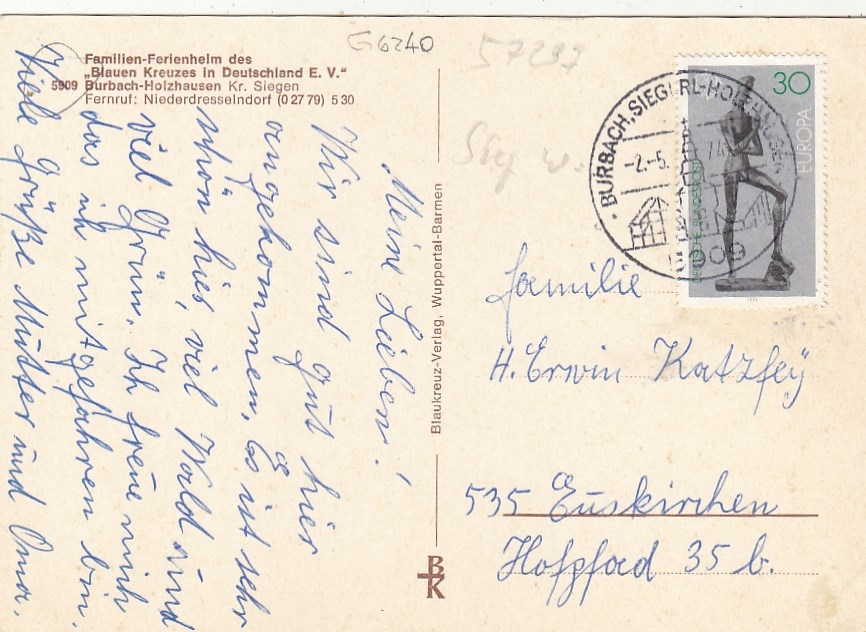 G6240
57293
Familien-Ferienheim des
„Blauen Kreuzes in Deutschland E. V."
5909 Burbach-Holzhausen Kr. Siegen
Fernruf: Niederdresselndorf (0 27 79) 5 30
Meine Lieben!
Wir sind gut hier
angekommen. Es ist sehr
schön hier, viel Wald und
viel Grün. Ich freue mich
das ich mitgefahren bin.
Viele Grüße Mutter und Oma.
Blaukreuz-Verlag, Wuppertal-Barmen
BK
30
EUROPA
DEUTSCHE BUNDESPOST
BURBACH, SIEGERL-HOLZHAUSEN
-2.-5. 74
5909
Familie
H. Erwin Katzfey
535 Euskirchen
Hofpfad 35 b.